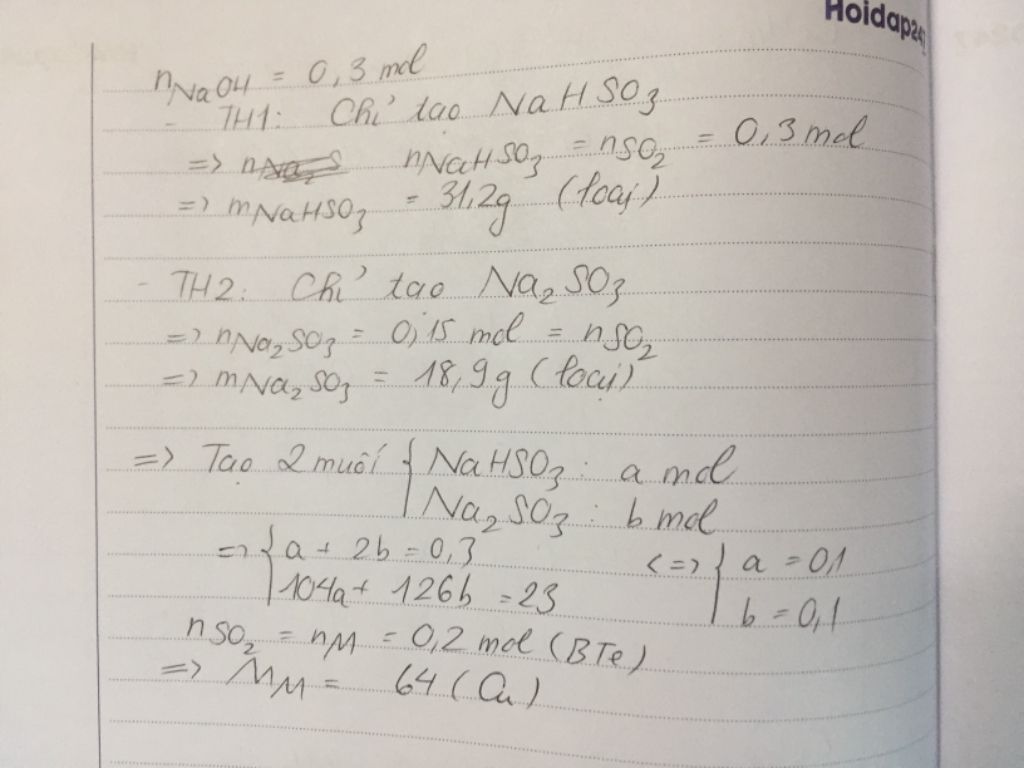 Hoidap247
nNaOH = 0,3 mol
- TH1: Chỉ tạo NaHSO3
=> nNaHSO3 = nSO2 = 0,3 mol
=> mNaHSO3 = 31,2g (loại)
- TH2: Chỉ tạo Na2SO3
=> nNa2SO3 = 0,15 mol = nSO2
=> mNa2SO3 = 18,9g (loại)
=> Tạo 2 muối { NaHSO3 : a mol
Na2SO3 : b mol
=> { a + 2b = 0,3 <=> { a = 0,1
104a + 126b = 23 b = 0,1
nSO2 = nM = 0,2 mol (BTe)
=> MM = 64 (Cu)